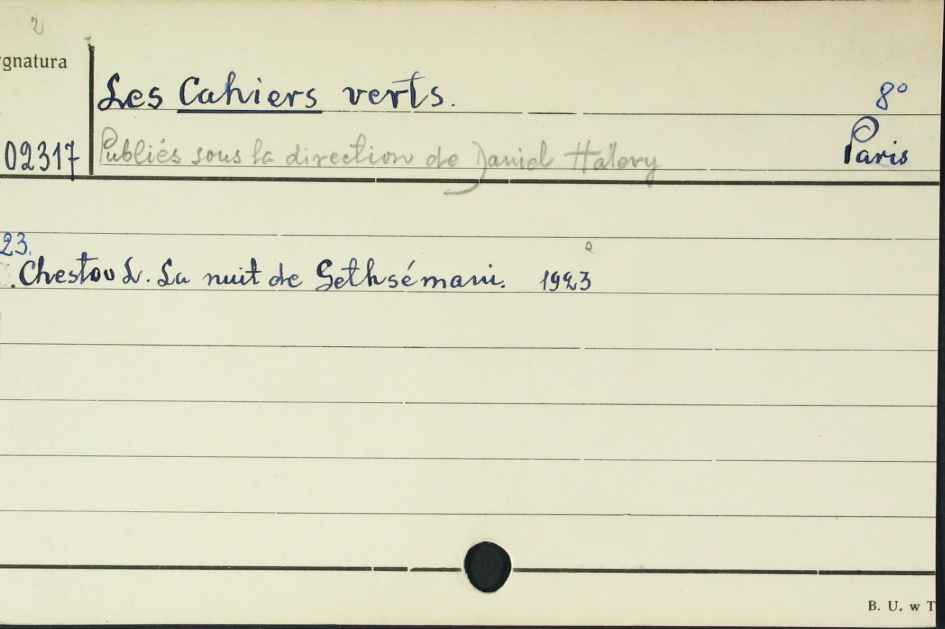 2
ygnatura
Les Cahiers verts. 8°
02317 Publiés sous la direction de Daniel Halevy Paris
23.
Chestov L. La nuit de Gethsémani. 1923
B. U. w T